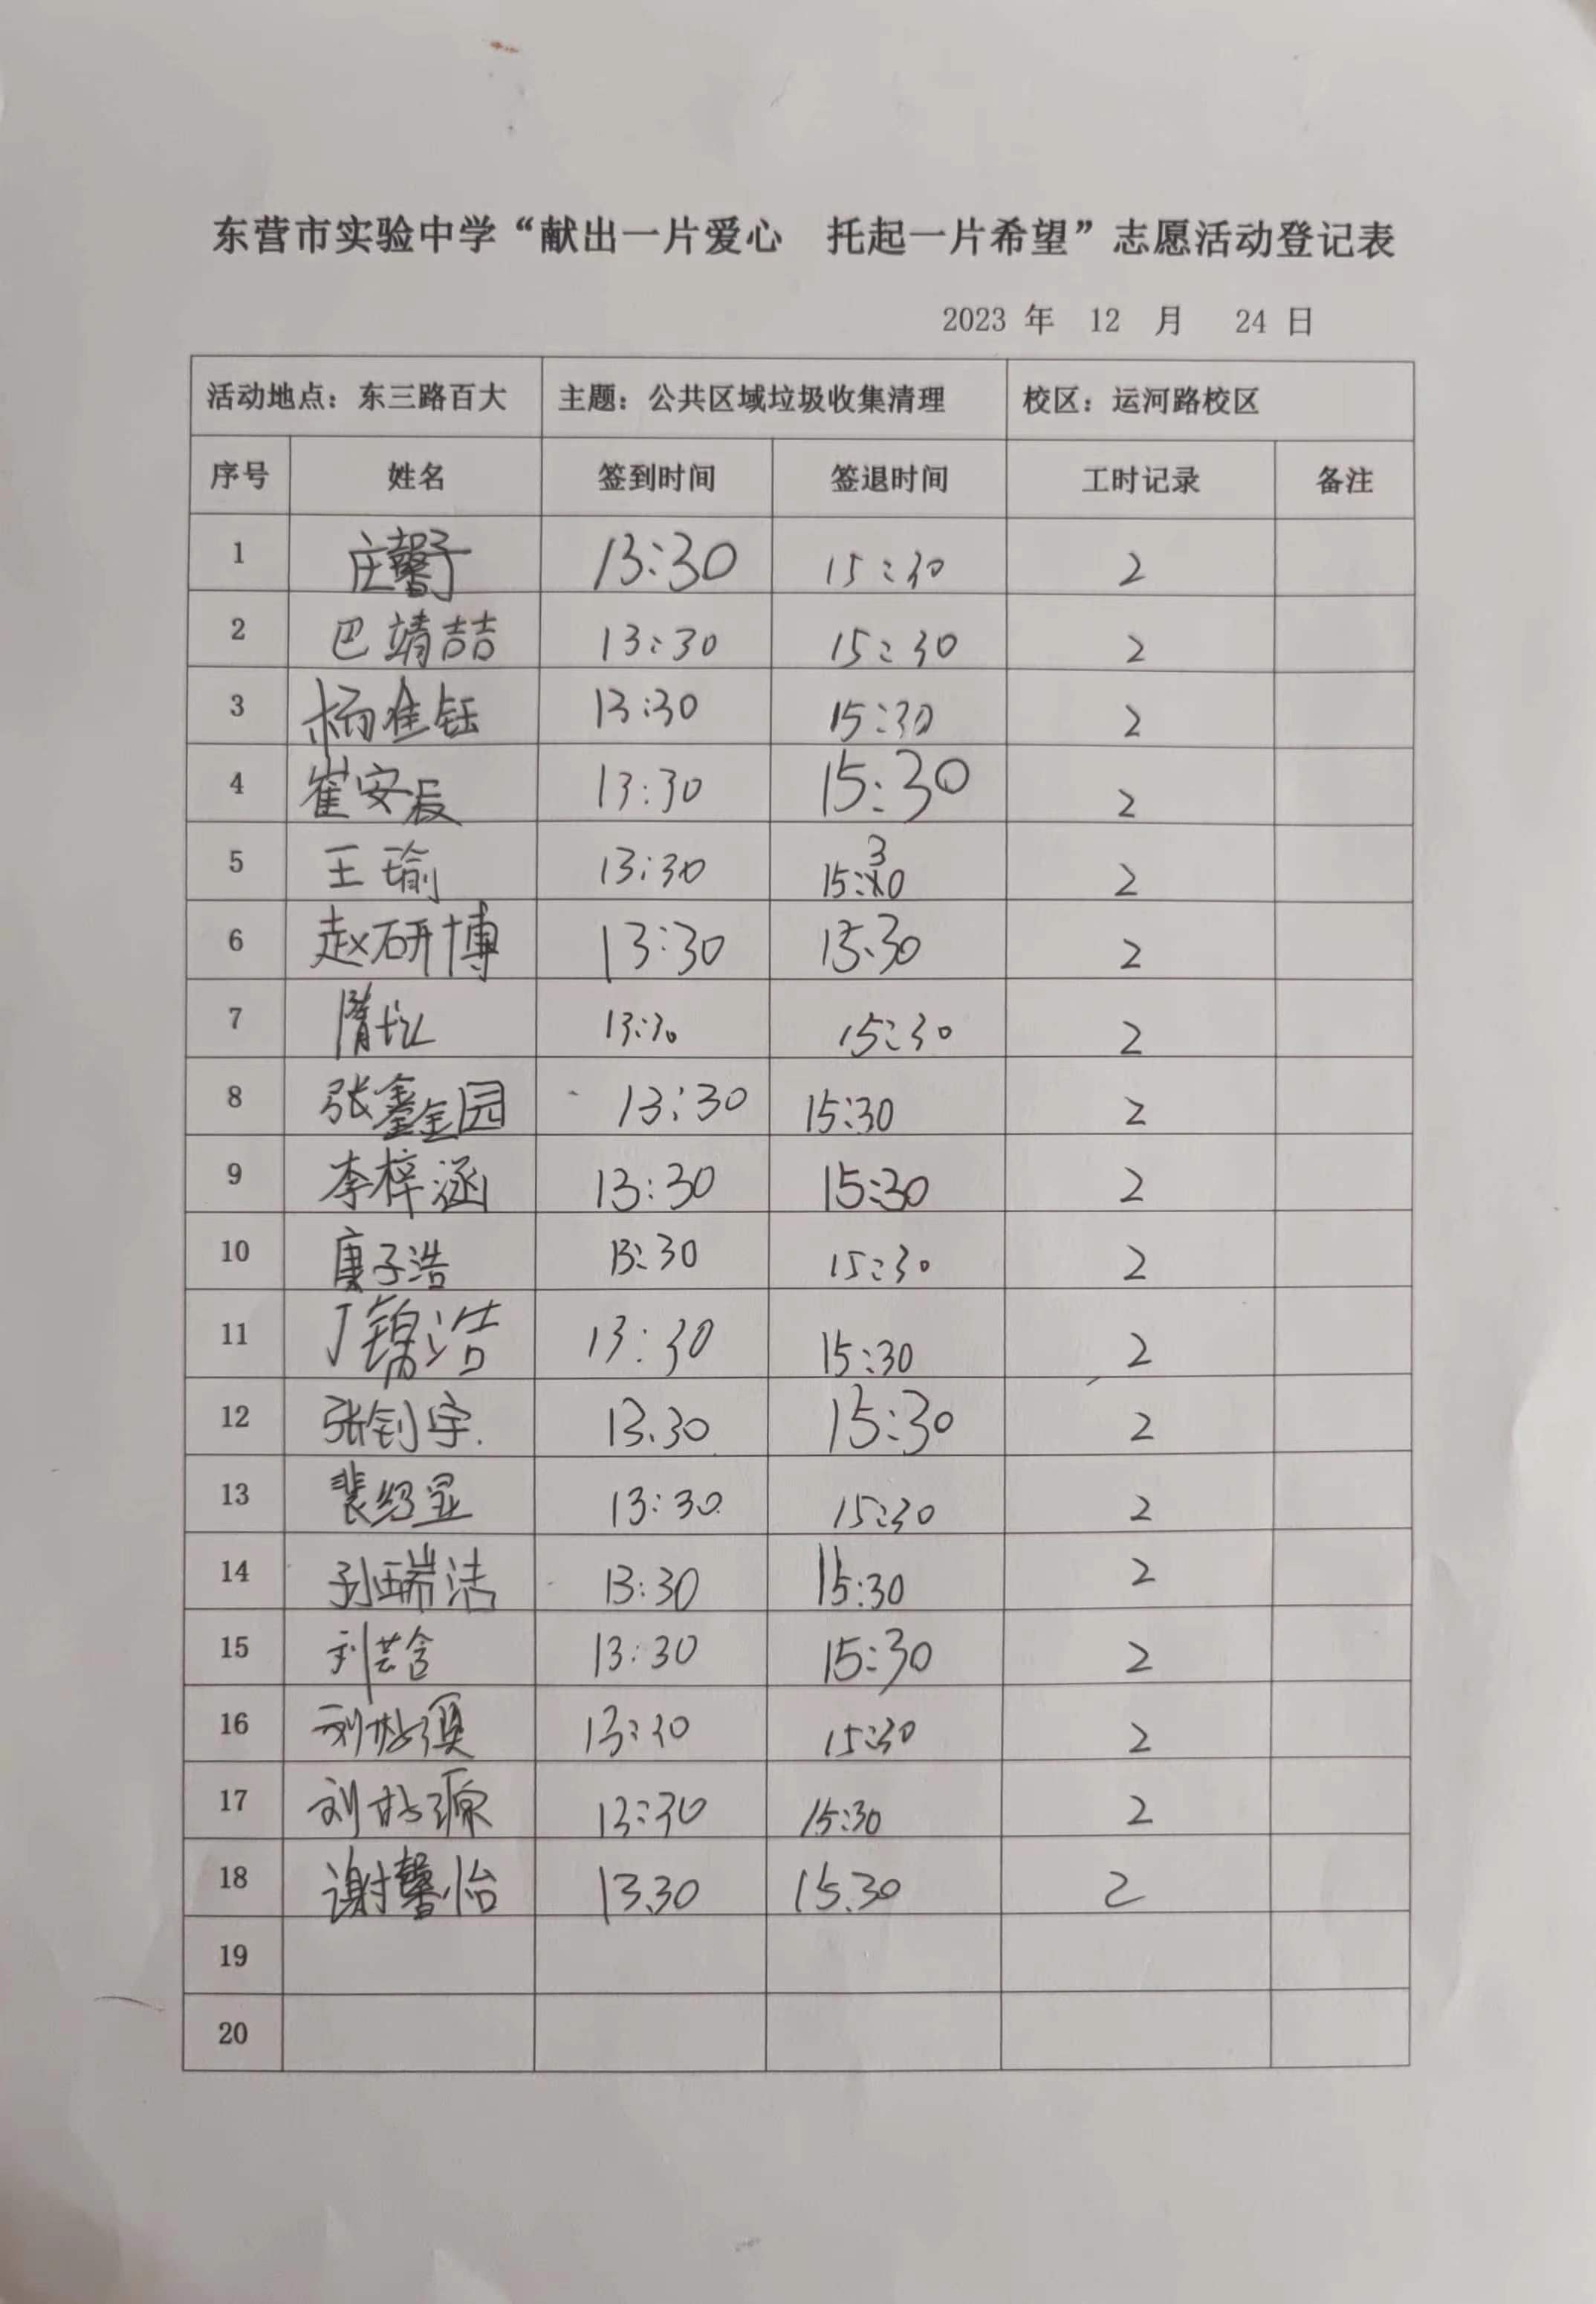 东营市实验中学“献出一片爱心 托起一片希望”志愿活动登记表
2023 年 12 月 24 日
活动地点：东三路百大 主题：公共区域垃圾收集清理 校区：运河路校区
序号 姓名 签到时间 签退时间 工时记录 备注
1 庄馨予 13:30 15:30 2
2 巴靖喆 13:30 15:30 2
3 杨佳钰 13:30 15:30 2
4 崔安辰 13:30 15:30 2
5 王瑜 13:30 15:30 2
6 赵研博 13:30 15:30 2
7 隋 13:30 15:30 2
8 张鑫园 13:30 15:30 2
9 李梓涵 13:30 15:30 2
10 子浩 13:30 15:30 2
11 丁锦浩 13:30 15:30 2
12 张钊宇 13.30 15:30 2
13 裴绍显 13:30 15:30 2
14 孙瑞洁 13:30 15:30 2
15 刘芸含 13:30 15:30 2
16 刘 13:30 15:30 2
17 刘 源 13:30 15:30 2
18 谢馨怡 13.30 15.30 2
19
20